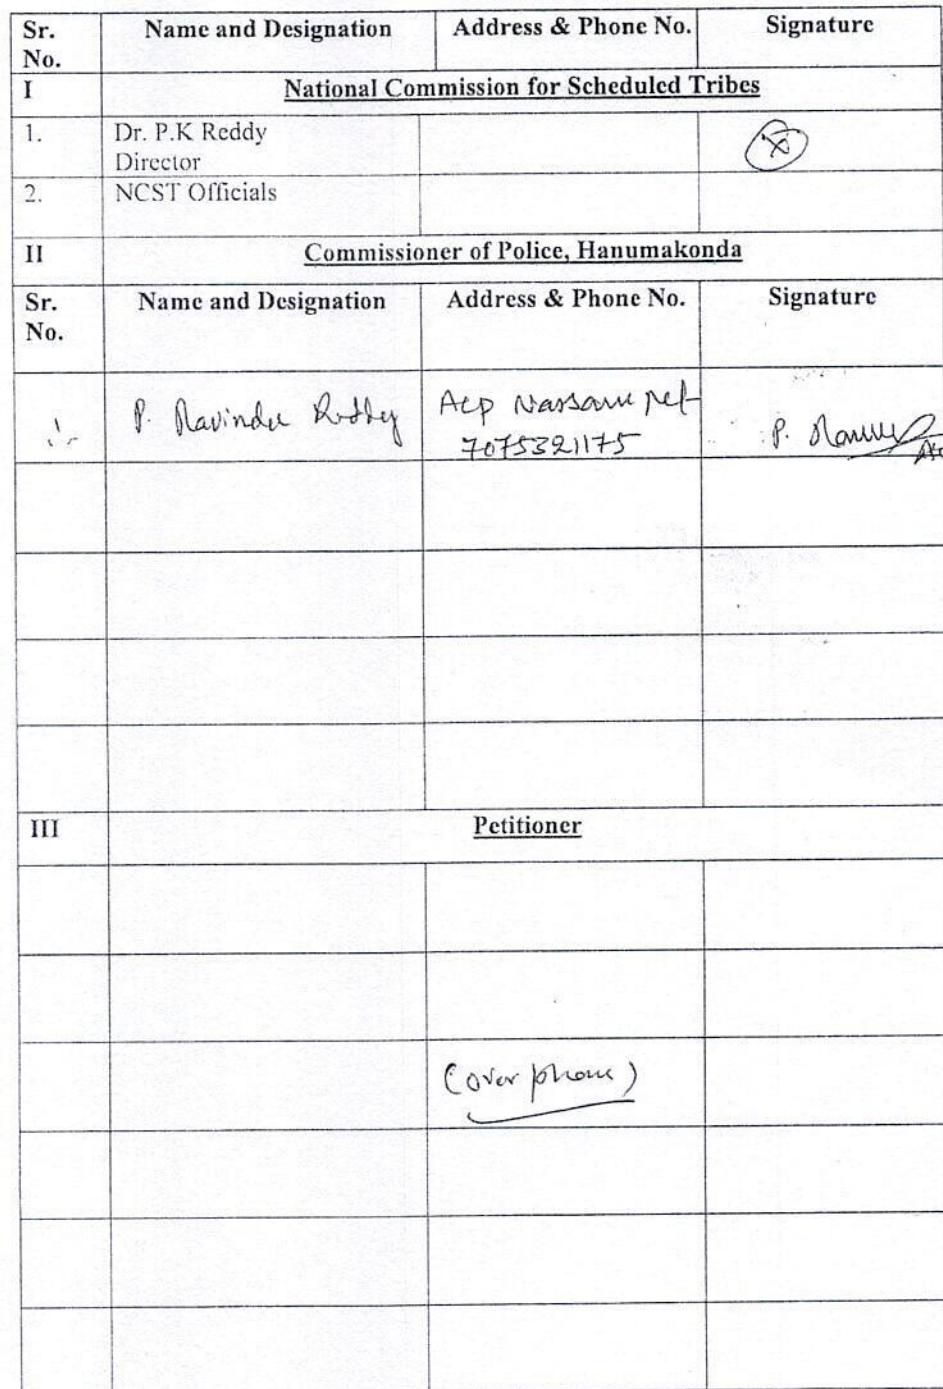 Sr. No. Name and Designation Address & Phone No. Signature
I National Commission for Scheduled Tribes
1. Dr. P.K Reddy
Director
2. NCST Officials
II Commissioner of Police, Hanumakonda
Sr. No. Name and Designation Address & Phone No. Signature
P. Ravinder Reddy ACP
7075321175 P.
III Petitioner
(over phone)